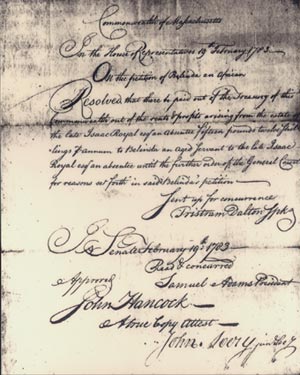 Commonwealth of Massachusetts
In the House of Representatives 19th February 1783
On the petition of Belinda an African
Resolved that there be paid out of the Treasury of this
Commonwealth out of the rents & profits arising from the estate of
the late Isaac Royal esqr an absentee fifteen pounds twelve shil-
lings pr annum to Belinda an aged servant to the late Isaac
Royal esqr an absentee until the further order of the General Court
for reasons set forth in said Belinda's petition
Sent up for concurrence
Tristram Dalton Spkr
In Senate February 19th 1783
Read & concurred
Samuel Adams President
Approved
John Hancock
A true Copy Attest
John Avery